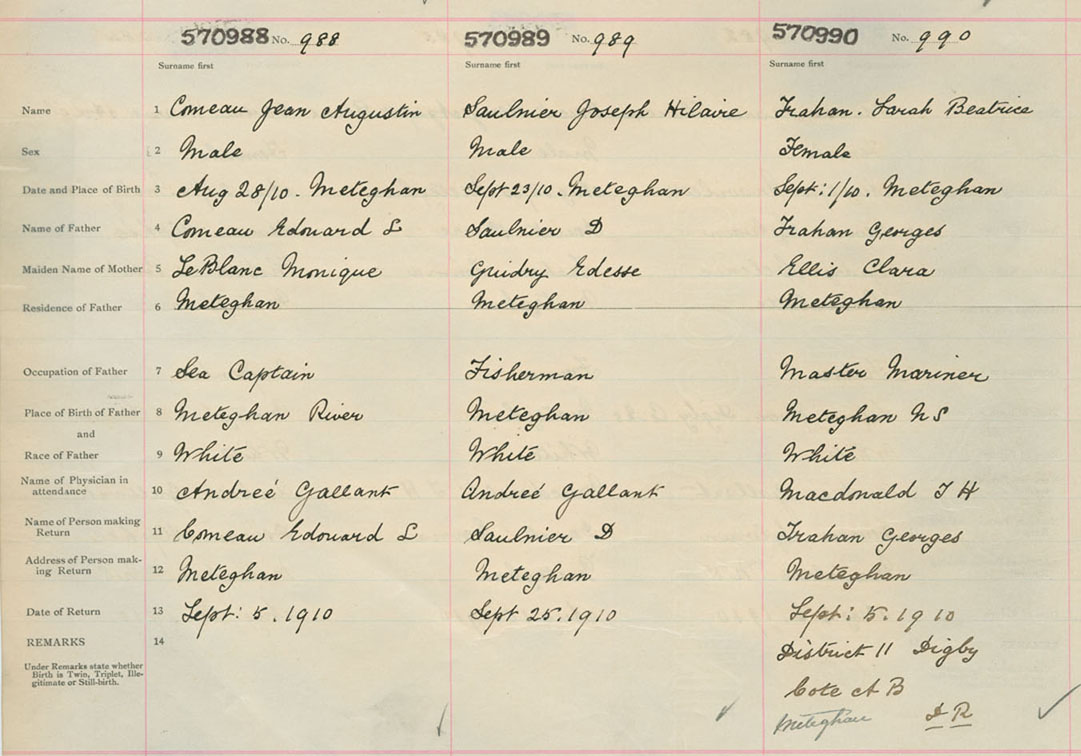 570988 No. 988 570989 No. 989 570990 No. 990
Surname first Surname first Surname first
Name 1 Comeau Jean Augustin Saulnier Joseph Hilaire Trahan. Sarah Beatrice
Sex 2 Male Male Female
Date and Place of Birth 3 Aug 28/10 - Meteghan Sept 23/10 - Meteghan Sept: 1/10. Meteghan
Name of Father 4 Comeau Edouard L Saulnier D Trahan Georges
Maiden Name of Mother 5 LeBlanc Monique Guidry Edesse Ellis Clara
Residence of Father 6 Meteghan Meteghan Meteghan
Occupation of Father 7 Sea Captain Fisherman Master Mariner
Place of Birth of Father 8 Meteghan River Meteghan Meteghan NS
and
Race of Father 9 White White White
Name of Physician in
attendance 10 Andreé Gallant Andreé Gallant Macdonald T H
Name of Person making
Return 11 Comeau Edouard L Saulnier D Trahan Georges
Address of Person mak-
ing Return 12 Meteghan Meteghan Meteghan
Date of Return 13 Sept: 5. 1910 Sept 25. 1910 Sept: 5. 1910
REMARKS 14
District 11 Digby
Under Remarks state whether
Birth is Twin, Triplet, Ille-
gitimate or Still-birth.
Cote A B
Meteghan D R